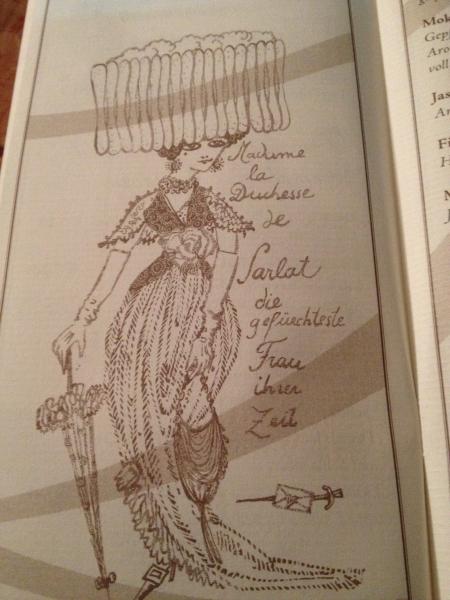 Madame
la
Duchesse
de
Sarlat
die
gefürchteste
Frau
ihrer
Zeit
Mok
Aro
voll
Jas